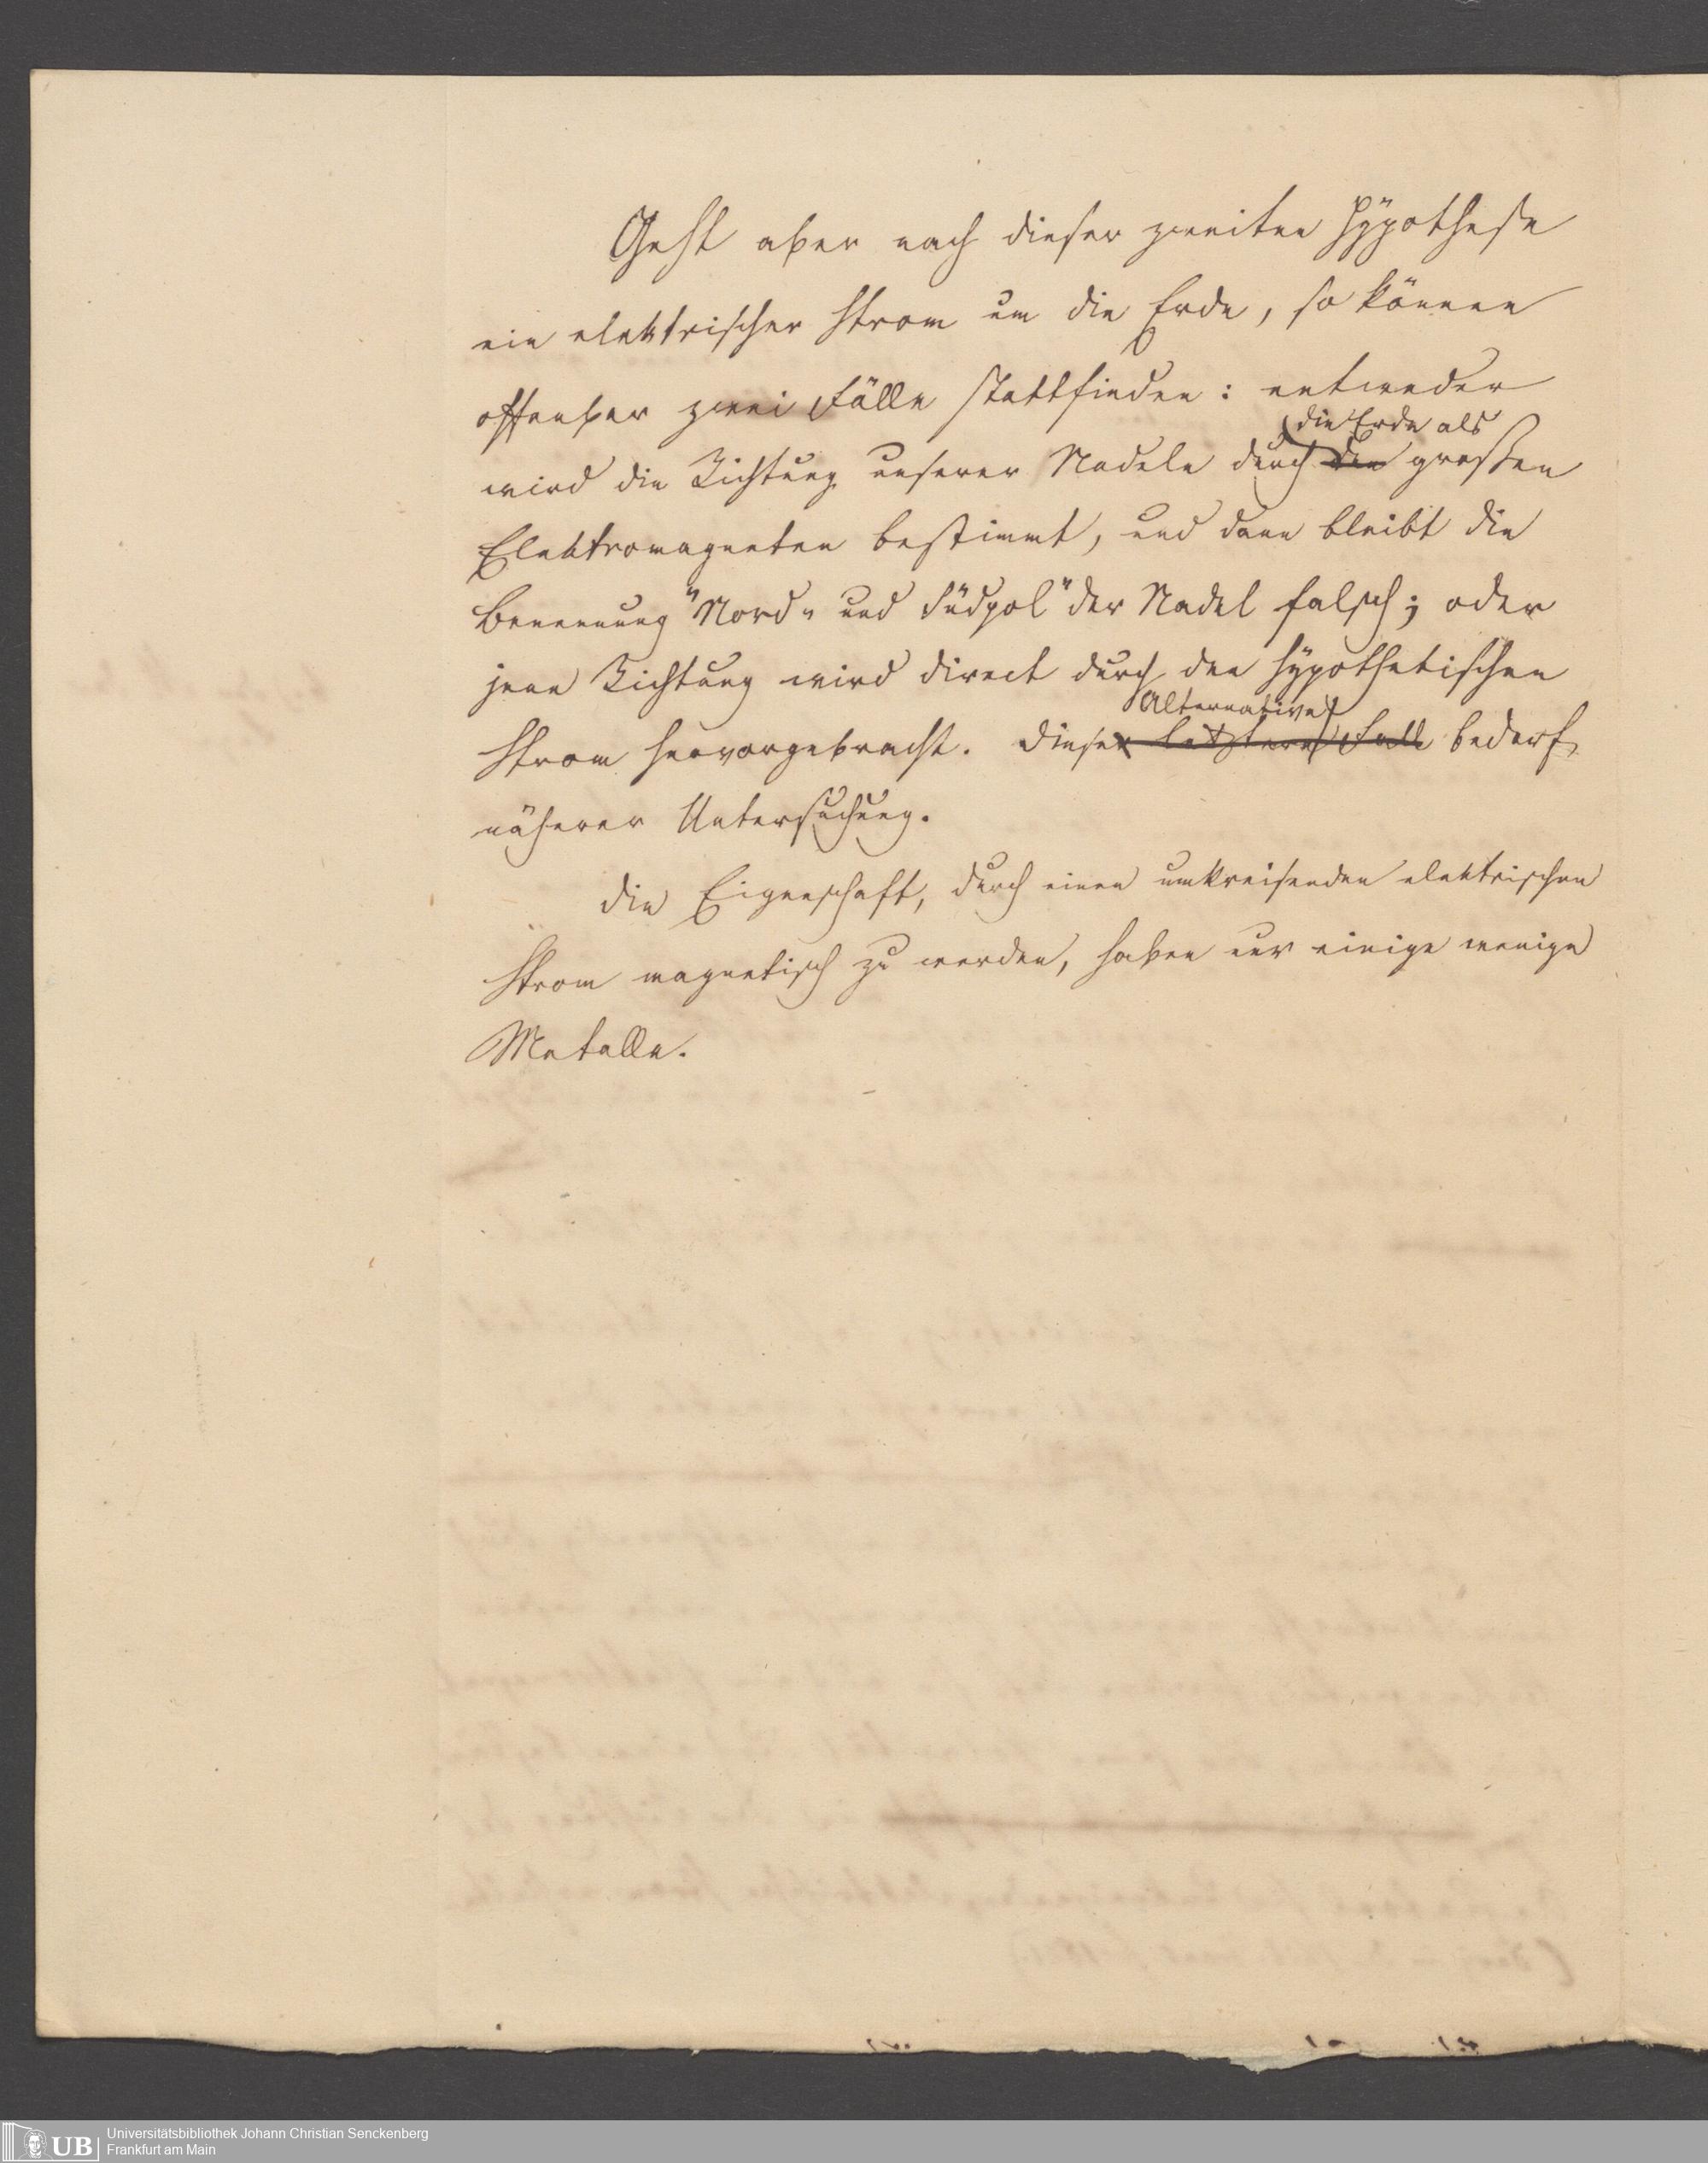 Geht aber nach dieser zweiten Hypothese
ein elektrischer Strom um die Erde, so können
offenbar zwei Fälle stattfinden: entweder
die Erde als
wird die Richtung unserer Nadeln durch den großen
Elektromagneten bestimmt, und dann bleibt die
Benennung "Nord- und Südpol" der Nadel falsch; oder
jene Richtung wird direct durch den hypothetischen
Alternative
Strom hervorgebracht. Dieser letztere Fall bedarf
näherer Untersuchung.
Die Eigenschaft, durch einen umkreisenden elektrischen
Strom magnetisch zu werden, haben nur einige wenige
Metalle.
UB
Universitätsbibliothek Johann Christian Senckenberg
Frankfurt am Main